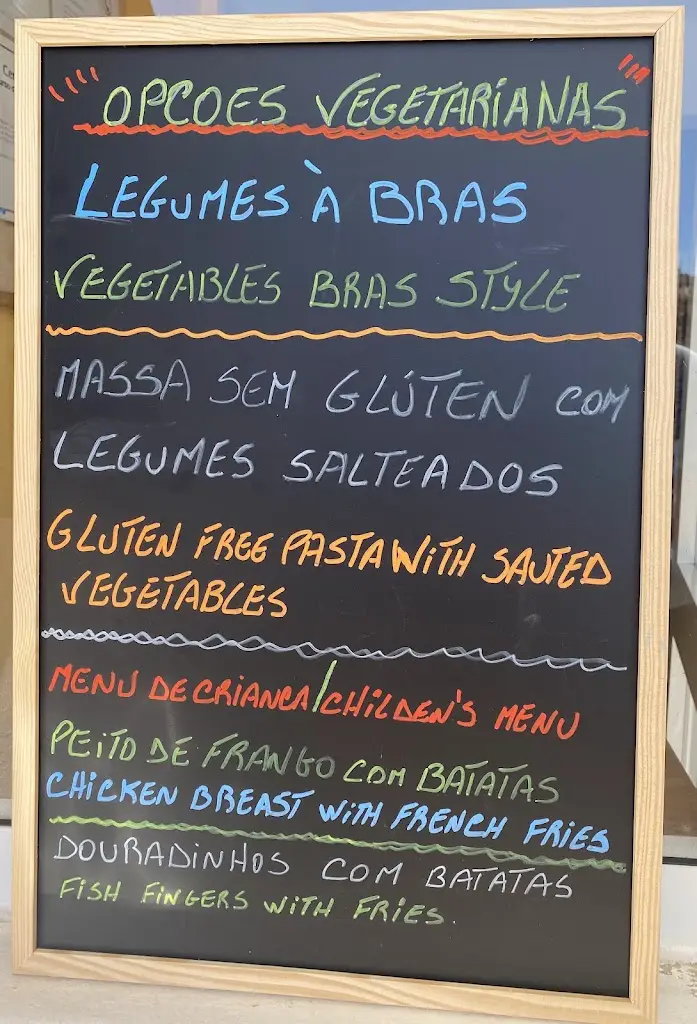 OPCOES VEGETARIANAS
LEGUMES À BRAS
VEGETABLES BRAS STYLE
MASSA SEM GLÚTEN COM
LEGUMES SALTEADOS
GLUTEN FREE PASTA WITH SAUTED
VEGETABLES
MENU DE CRIANCA/CHILDEN'S MENU
PEITO DE FRANGO COM BATATAS
CHICKEN BREAST WITH FRENCH FRIES
DOURADINHOS COM BATATAS
FISH FINGERS WITH FRIES.